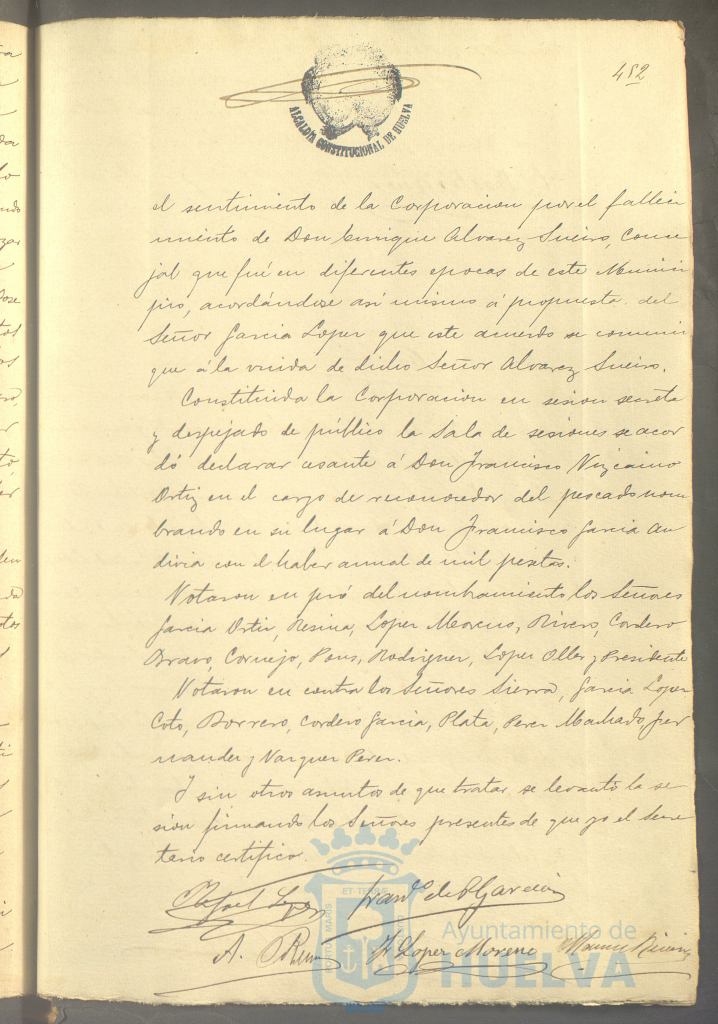 452
ALCALDIA CONSTITUCIONAL DE HUELVA
el sentimiento de la Corporacion por el falleci
miento de Don Enrique Alvarez Sueiro, Conce
jal que fué en diferentes epocas de este Munici
pio, acordándose asi mismo á propuesta del
Señor Garcia Lopez que este acuerdo se comuni
que á la viuda de dicho Señor Alvarez Sueiro.
Constituida la Corporacion en sesion secreta
y despejado de público la Sala de sesiones se acor
dó declarar cesante á Don Francisco Vizcaino
Ortiz en el cargo de reconocedor del pescado nom
brando en su lugar á Don Francisco Garcia An
divia con el haber anual de mil pesetas.
Votaron en pró del nombramiento los Señores
Garcia Ortiz, Resina, Lopez Moreno, Rivero, Cordero
Bravo, Cornejo, Pons, Rodriguez, Lopez Oller y Presidente
Votaron en contra los Señores Sierra, Garcia Lopez
Coto, Borrero, Cordero Garcia, Plata, Perez Machado, Fer
nandez y Vazquez Perez.
Y sin otros asuntos de que tratar se levantó la se
sion firmando los Señores presentes de que yo el Secre
tario certifico.
Rafael Lopez Franco de P Garcia
A. F Lopez Moreno
ET TERRE
MARIS
Ayuntamiento de
HUELVA